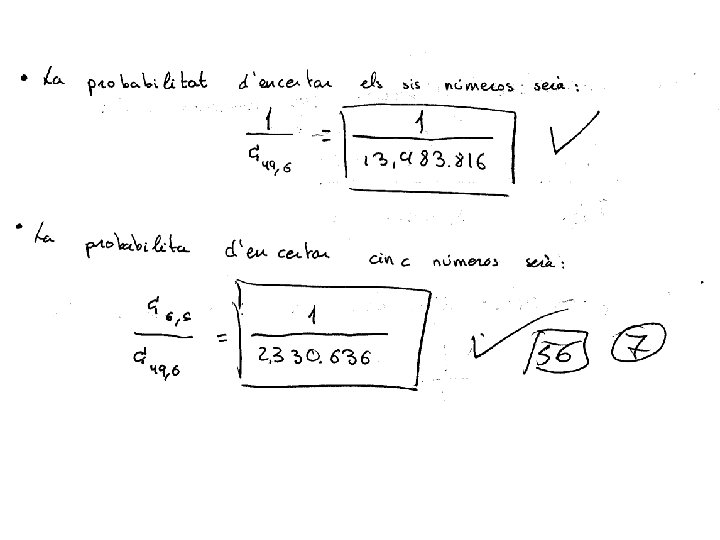 • La probabilitat d'encertar els sis números serà:
1 / C₄₉,₆ = 1 / 13,983.816 ✓
• La probabilita d'encertar cinc números serà:
C₆,₅ / C₄₉,₆ = 1 / 2,330.636 ✓ 36 7